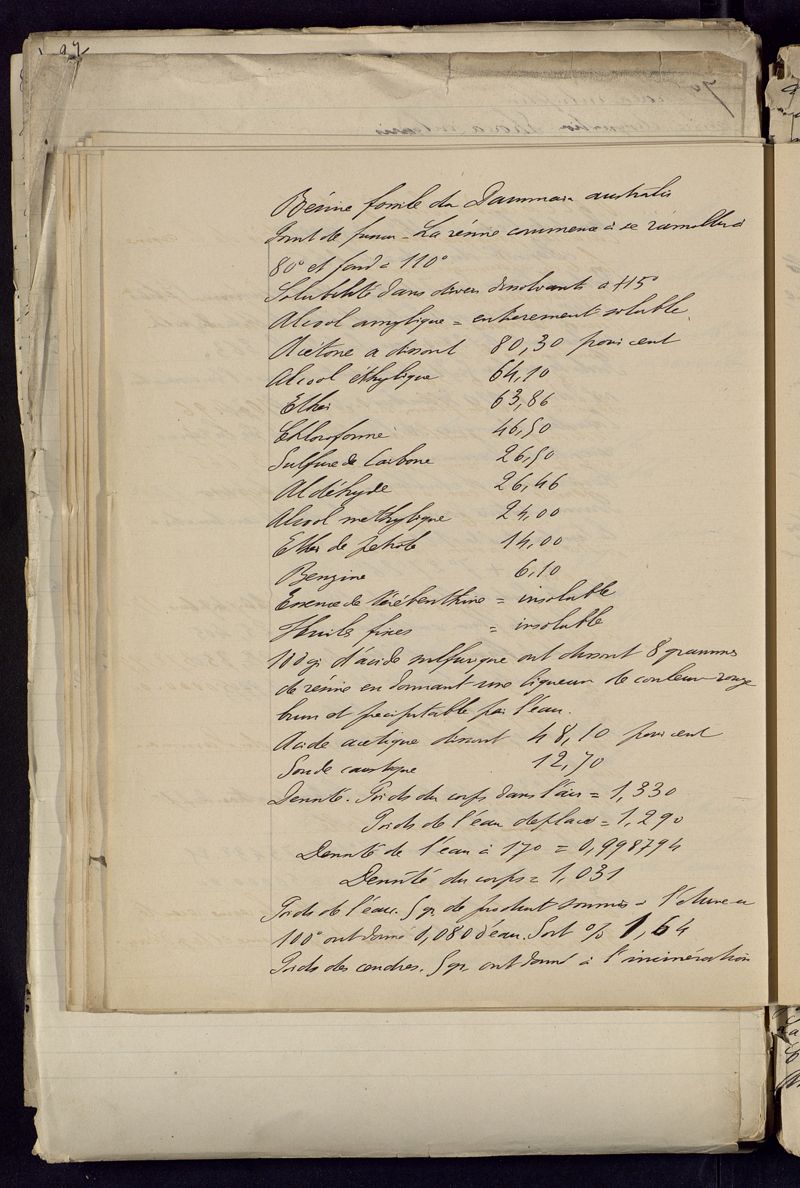 97
Résine fossile du Dammara australis
Point de fusion - La résine commence à se ramollir à
80° et fond à 110°
Solubilité dans divers dissolvants à +15°
Alcool amylique = entièrement soluble.
Acétone a dissout 80,30 pour cent
Alcool éthylique 64,10
Ether 63,86
Chloroforme 46,50
Sulfure de Carbone 26,50
Aldéhyde 26,46
Alcool méthylique 24,00
Ether de pétrole 14,00
Benzine 6,10
Essence de térébenthine = insoluble
Huiles fixes = insoluble
100 gr d'acide sulfurique ont dissout 8 grammes
de résine en donnant une liqueur de couleur rouge
brun et précipitable par l'eau.
Acide acétique dissout 48,10 pour cent
Soude caustique 12,70
Densité. Poids du corps dans l'air = 1,330
Poids de l'eau déplacée = 1,290
Densité de l'eau à 17° = 0,998794
Densité du corps = 1,031
Poids de l'eau. 5 gr. de produit soumis à l'étuve à
100° ont donné 0,080 d'eau. Soit % 1,64
Poids des cendres. 5 gr. ont donné à l'incinération